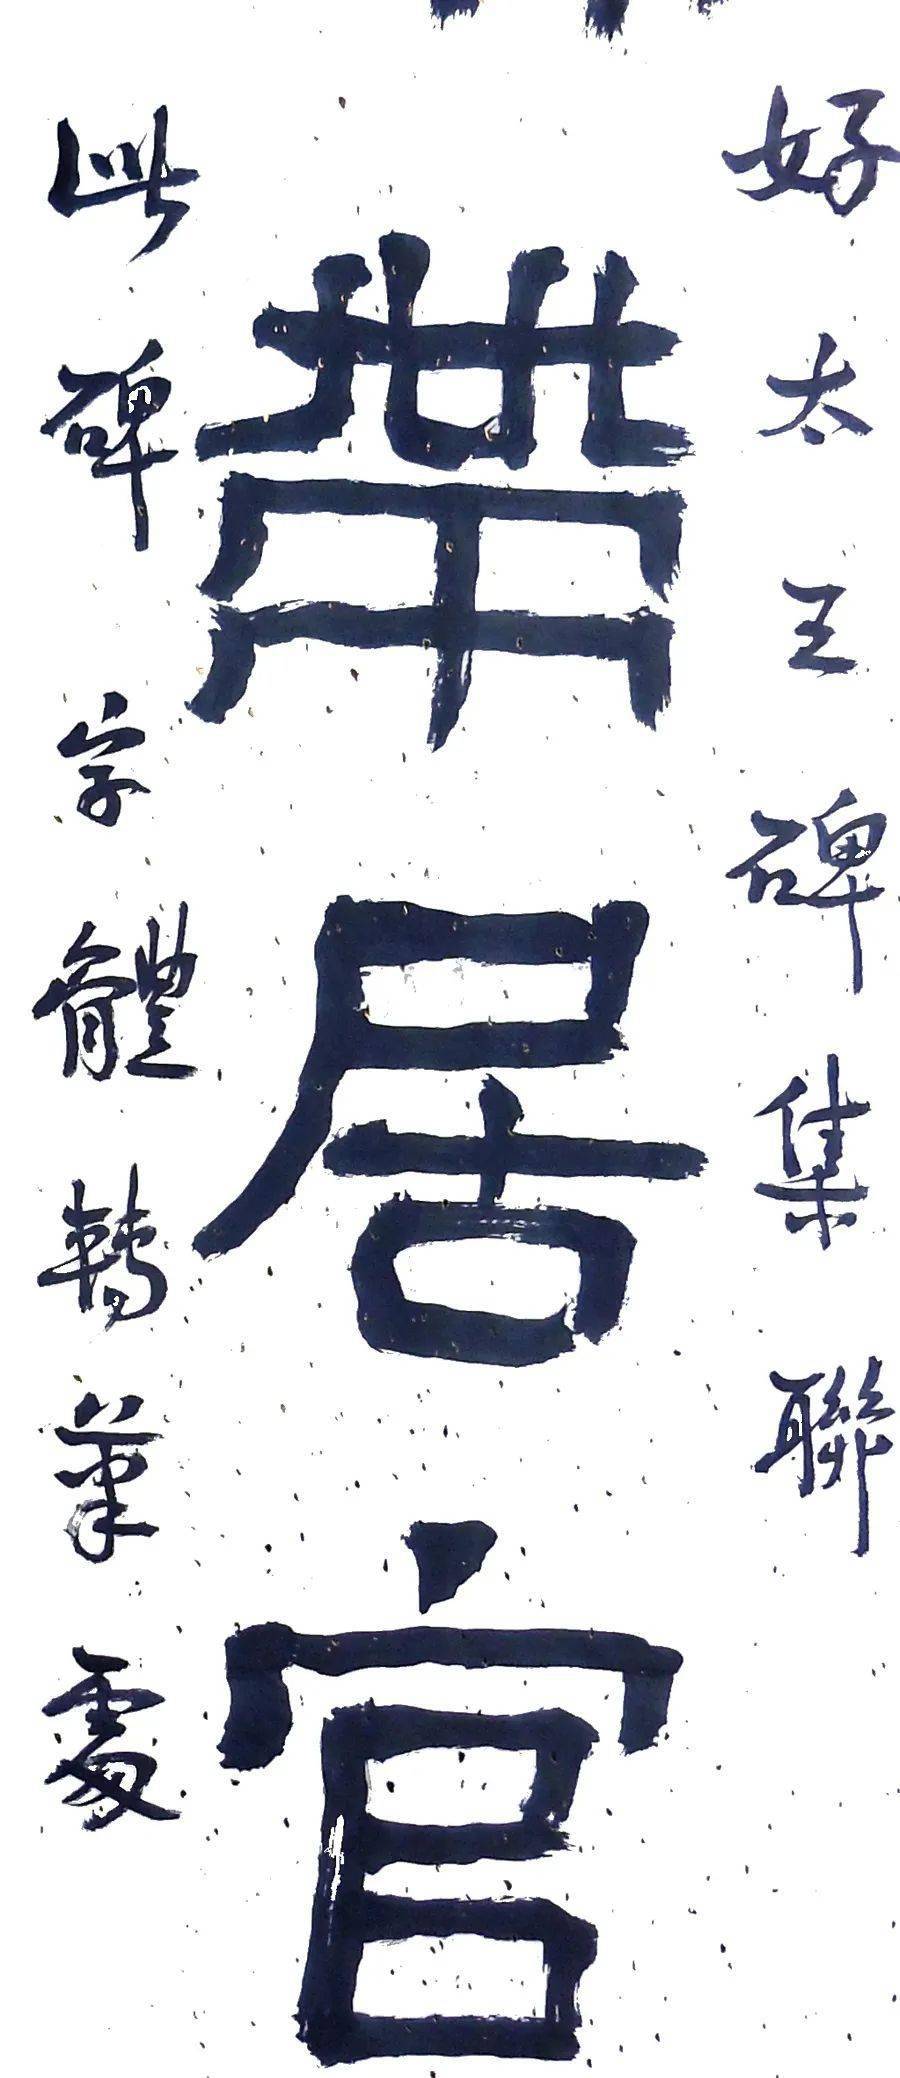 好太王碑集聯
帶居官
此碑字體轉筆處